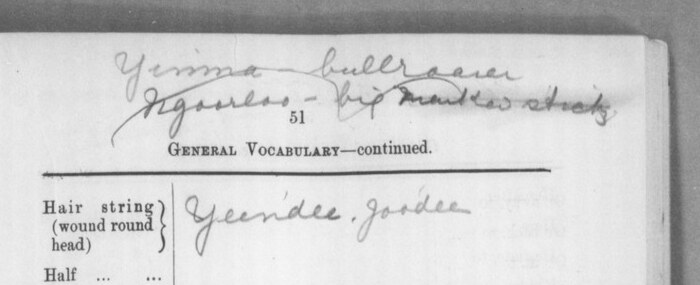 Yimma - bullroarer
Ngoorloo - big marked stick
51
GENERAL VOCABULARY—continued.
Hair string (wound round head) Yeen'dee, Joo'dee
Half ... ...